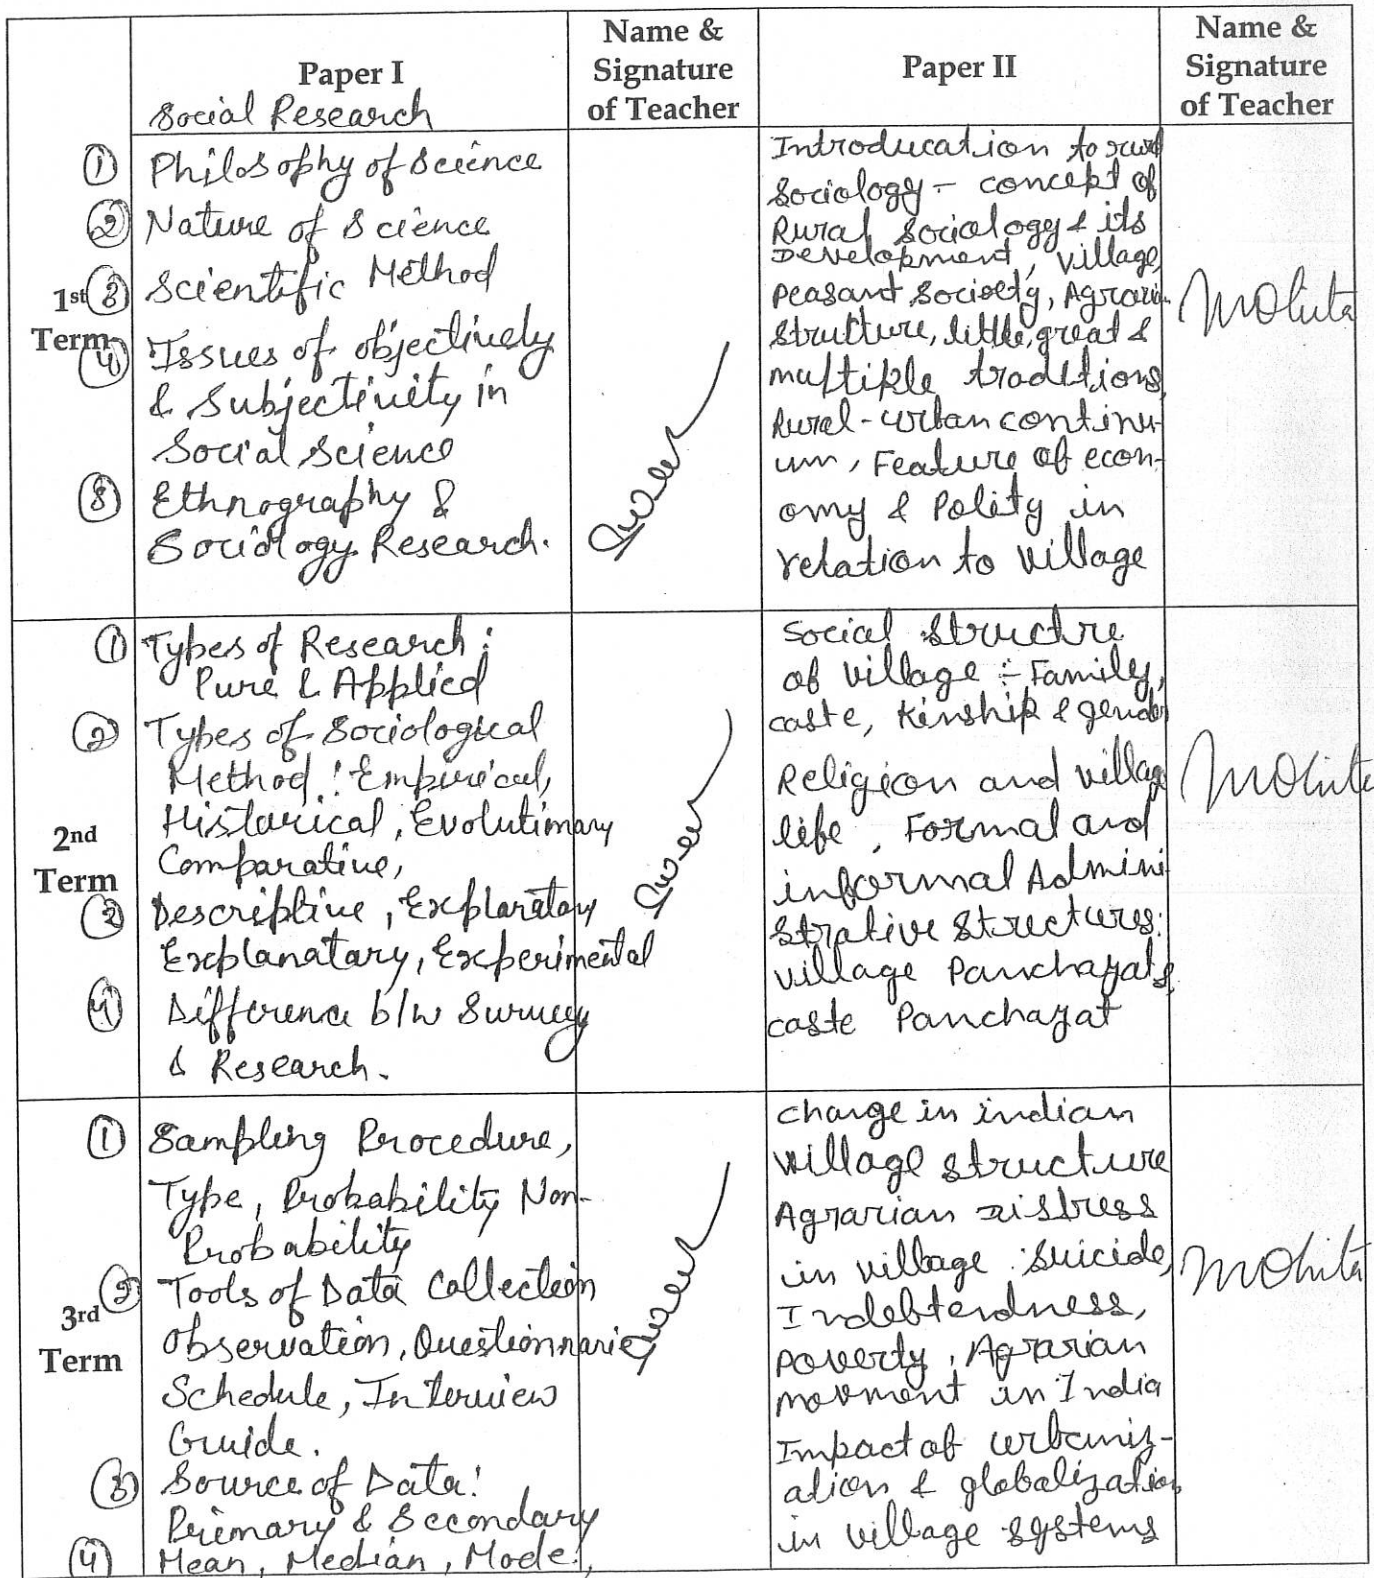 Paper I
Social Research
Name &
Signature
of Teacher
Paper II
Name &
Signature
of Teacher
1st
Term
① Philosophy of Science
② Nature of Science
③ Scientific Method
④ Issues of objectively
& Subjectivity in
Social Science
⑤ Ethnography &
Sociology Research.
Introducation to rural
Sociology - concept of
Rural Sociology & its
Development, village,
Peasant Society, Agrari-
Strutture, little, great &
multiple traditions,
Rural-urban continu-
um, Feature of econ-
omy & Polity in
relation to village
Mohita
2nd
Term
① Types of Research:
Pure & Applied
② Types of Sociological
Method: Empirical,
Historical, Evolutionary
Comparative,
③ Descriptive, Exploratory
Explanatary, Experimental
④ Difference b/w Survey
& Research.
Social Structre
of village :- Family,
caste, Kinship & gender
Religion and village
life, Formal and
informal Admini
strative structures:
village Panchayats,
caste Panchayat
Mohita
3rd
Term
① Sampling Procedure,
Type, Probability Non-
Probability
② Tools of Data Collection
Observation, Questionnarie
Schedule, Interview
Guide.
③ Source of Data:
Primary & Secondary
④ Mean, Median, Mode.
change in indian
village structure
Agrarian distress
in village: Suicide,
Indebtendness,
Poverty, Agrarian
movment in India
Impact of urbaniz-
ation & globalization
in village systems
Mohita